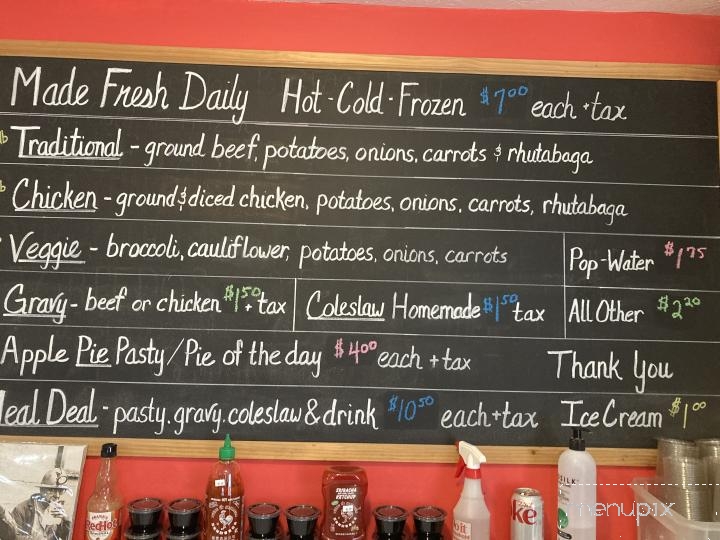 Made Fresh Daily Hot-Cold-Frozen $7.00 each + tax
Traditional - ground beef, potatoes, onions, carrots & rhutabaga
Chicken - ground & diced chicken, potatoes, onions, carrots, rhutabaga
Veggie - broccoli, cauliflower, potatoes, onions, carrots
Pop-Water $1.75
Gravy - beef or chicken $1.50 + tax
Coleslaw Homemade $1.50 tax
All Other $2.20
Apple Pie Pasty/Pie of the day $4.00 each + tax
Thank You
Meal Deal - pasty, gravy, coleslaw & drink $10.50 each + tax
Ice Cream $1.00
RedHot
SRIRACHA
ke
menupix